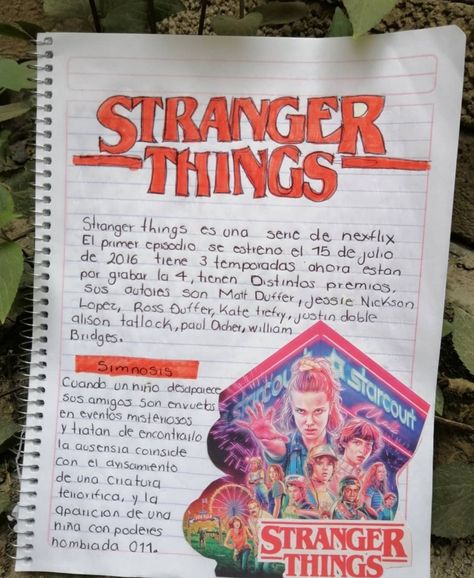 STRANGER
THINGS
Stranger things es una serie de nexflix
El primer episodio se estreno el 15 de julio
de 2016 tiene 3 temporadas ahora estan
por grabar la 4, tienen Distintos premios,
sus autores son Matt Duffer, Jessie Nickson
Lopez, Ross Duffer, Kate trefry, justin doble
alison tatlock, paul Dicher, william
Bridges.
Simnosis
Cuando un niño desaparece
sus amigos son envueltos
en eventos misteriosos
y tratan de encontrarlo
la ausensia coinside
con el avisamiento
de una criatura
terrorifica, y la
aparicion de una
niña con poderes
nombrada 011.
starcourt
starcourt
STRANGER
THINGS